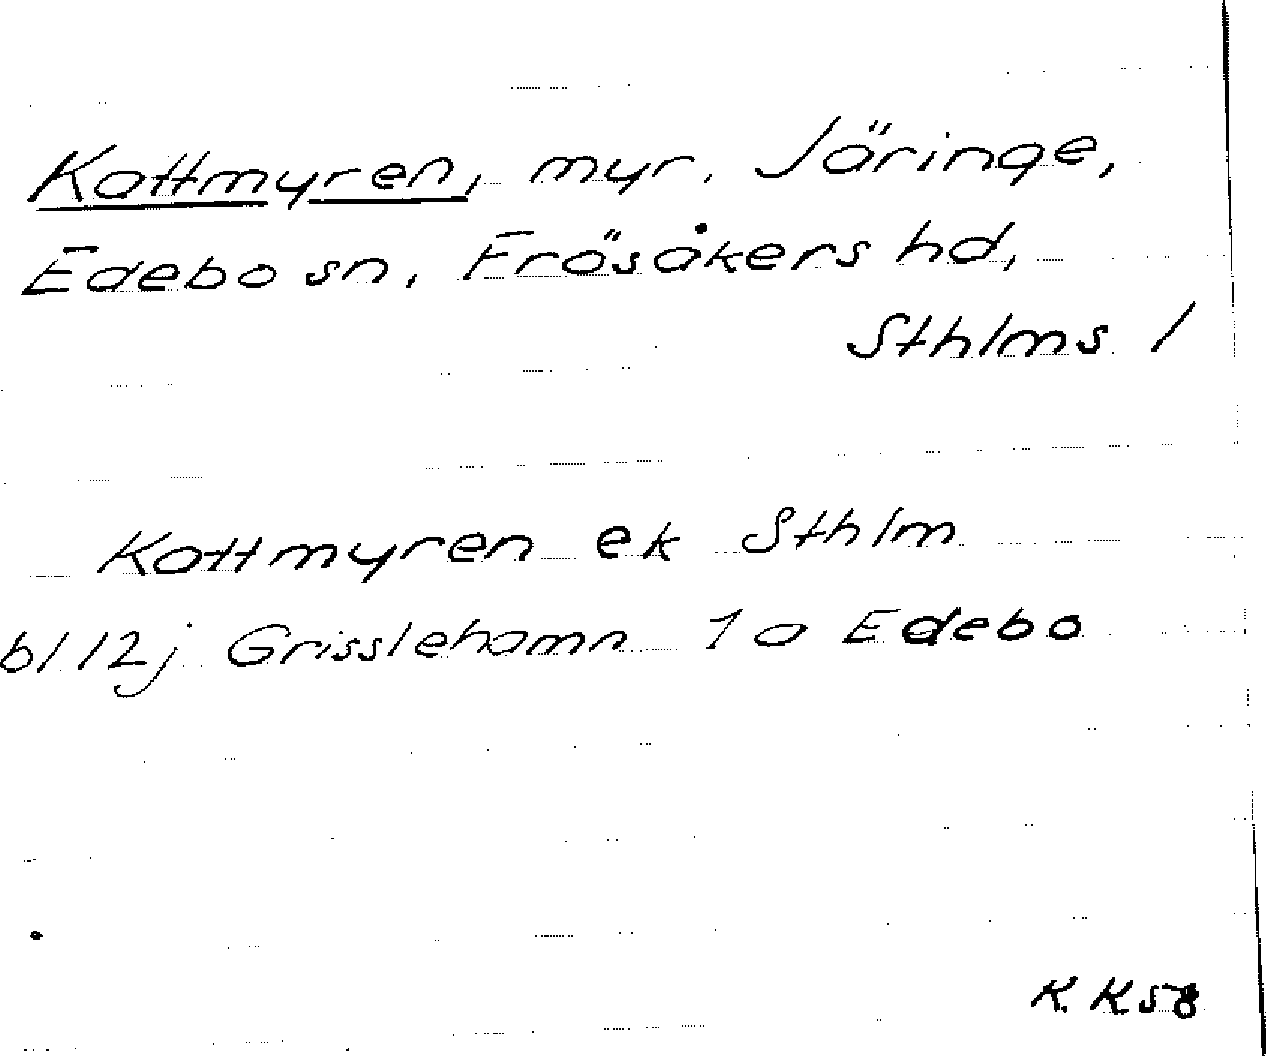 Kattmyren, myr, Järinge,
Edebo sn, Frösåkers hd,
Sthlms l
Kattmyren ek Sthlm
bl 12j Grisslehamn 1a Edebo
K. K 58